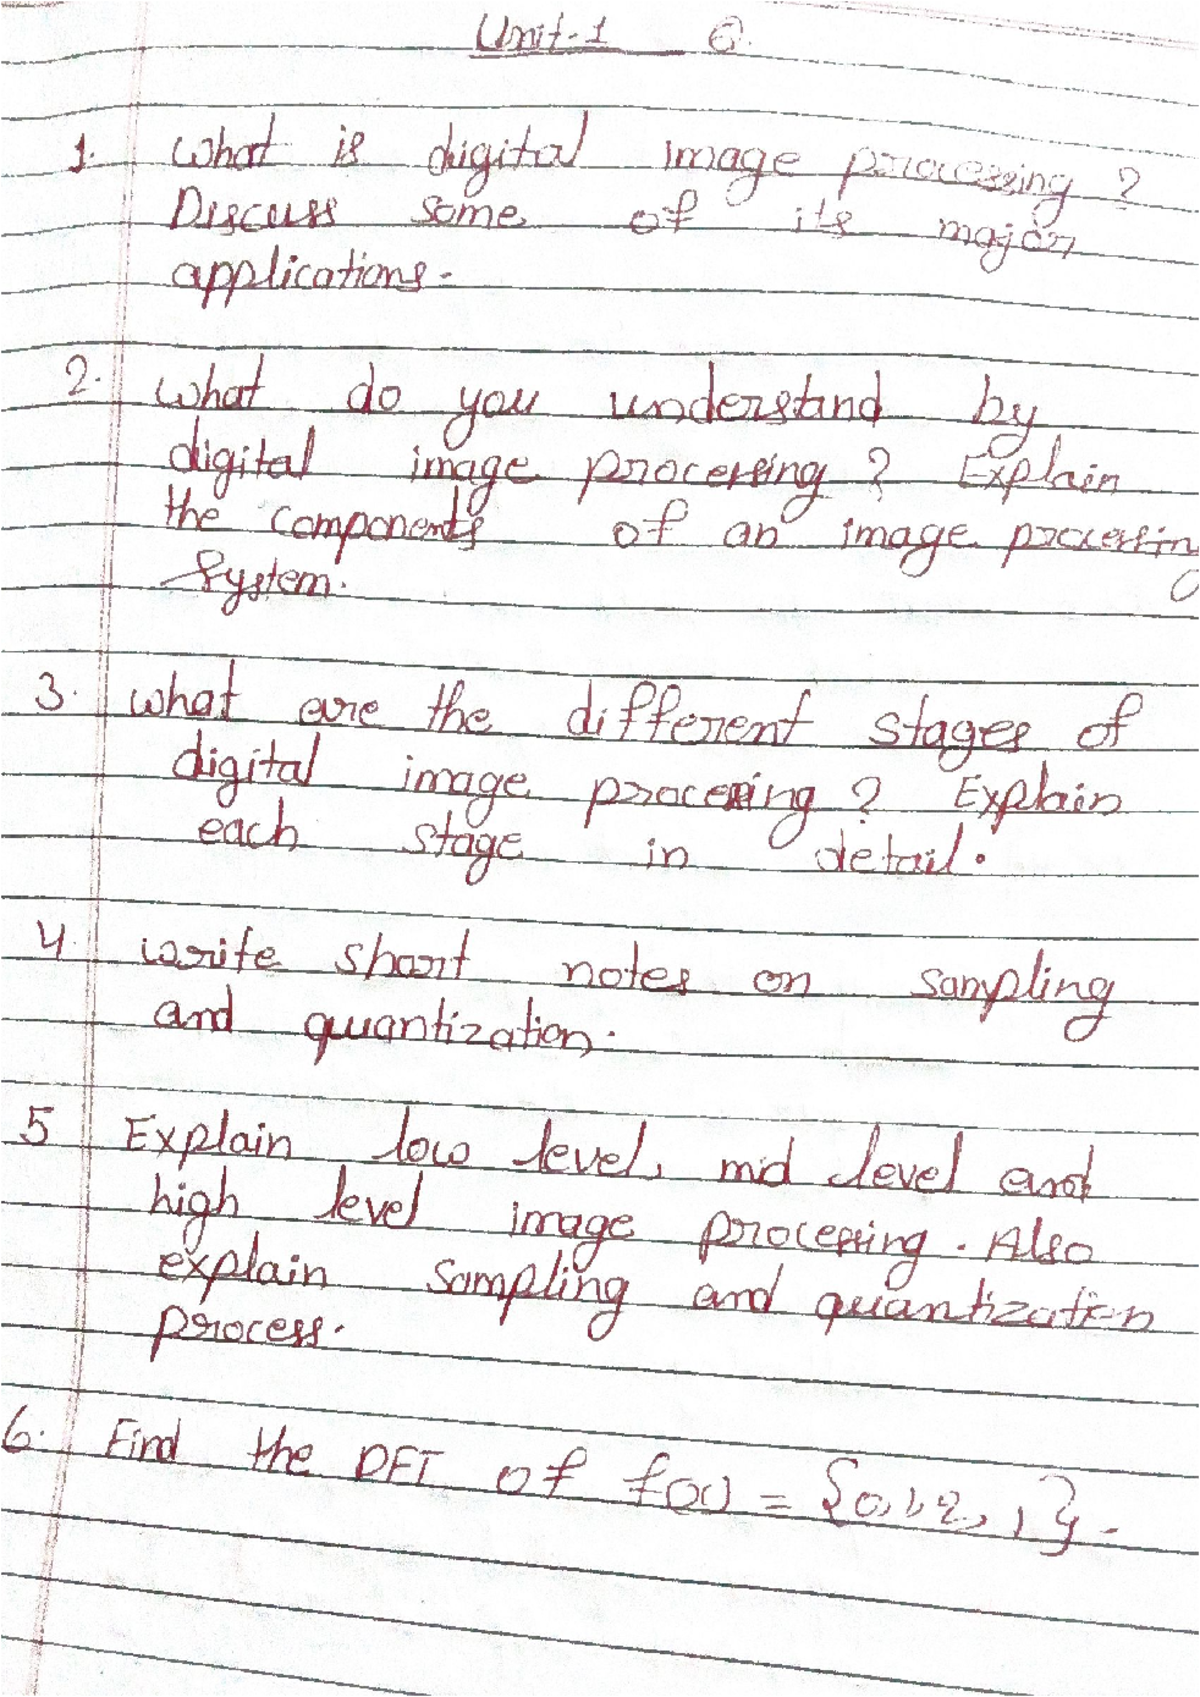 Unit-1 6.
1. What is digital image processing ?
Discuss some of its major
applications.
2. What do you understand by
digital image processing ? Explain
the components of an image processing
System.
3. what are the different stages of
digital image processing ? Explain
each stage in detail.
4. write short notes on sampling
and quantization.
5 Explain low level, mid level and
high level image processing. Also
explain sampling and quantization
process.
6. Find the DFT of f(x) = {0,1,2,,1}.